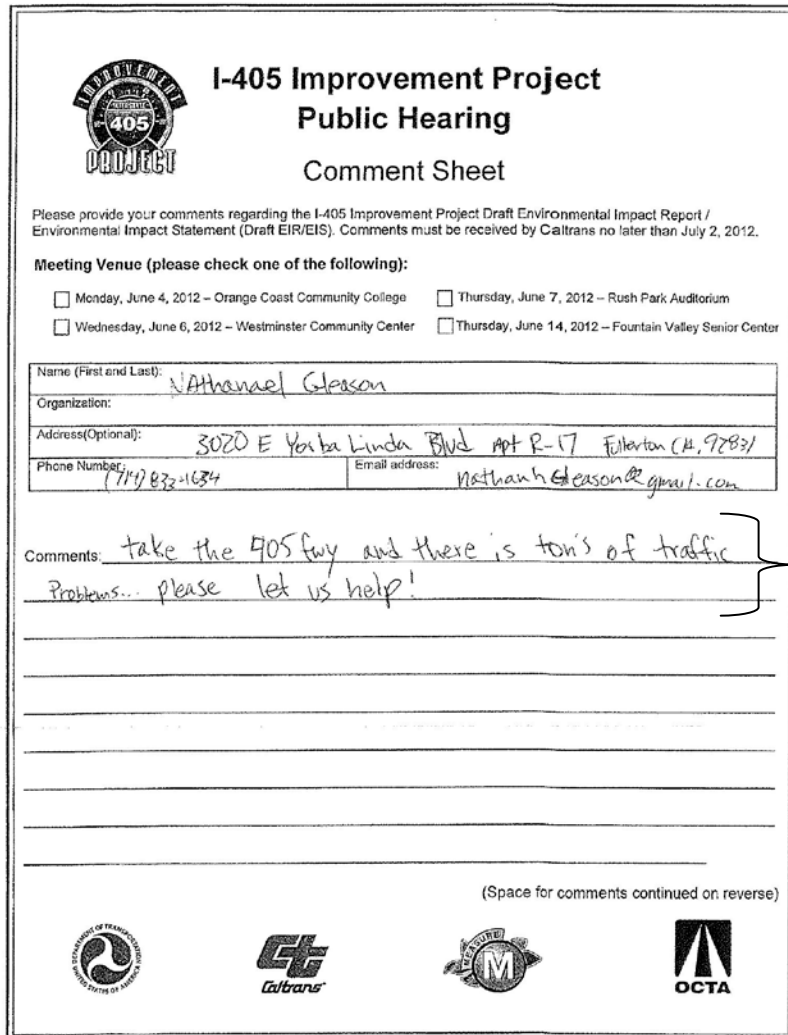 IMPROVEMENT
INTERSTATE
405
PROJECT
I-405 Improvement Project
Public Hearing
Comment Sheet
Please provide your comments regarding the I-405 Improvement Project Draft Environmental Impact Report /
Environmental Impact Statement (Draft EIR/EIS). Comments must be received by Caltrans no later than July 2, 2012.
Meeting Venue (please check one of the following):
Monday, June 4, 2012 – Orange Coast Community College
Thursday, June 7, 2012 – Rush Park Auditorium
Wednesday, June 6, 2012 – Westminster Community Center
Thursday, June 14, 2012 – Fountain Valley Senior Center
Name (First and Last): NAthanael Gleason
Organization:
Address(Optional): 3020 E Yorba Linda Blvd Apt R-17 Fullerton CA, 92831
Phone Number: (714) 833-1634
Email address: nathanhGleason@gmail.com
Comments: take the 405 fwy and there is ton's of traffic
Problems... please let us help!
(Space for comments continued on reverse)
DEPARTMENT OF TRANSPORTATION
UNITED STATES OF AMERICA
Caltrans
MEASURE
M
OCTA